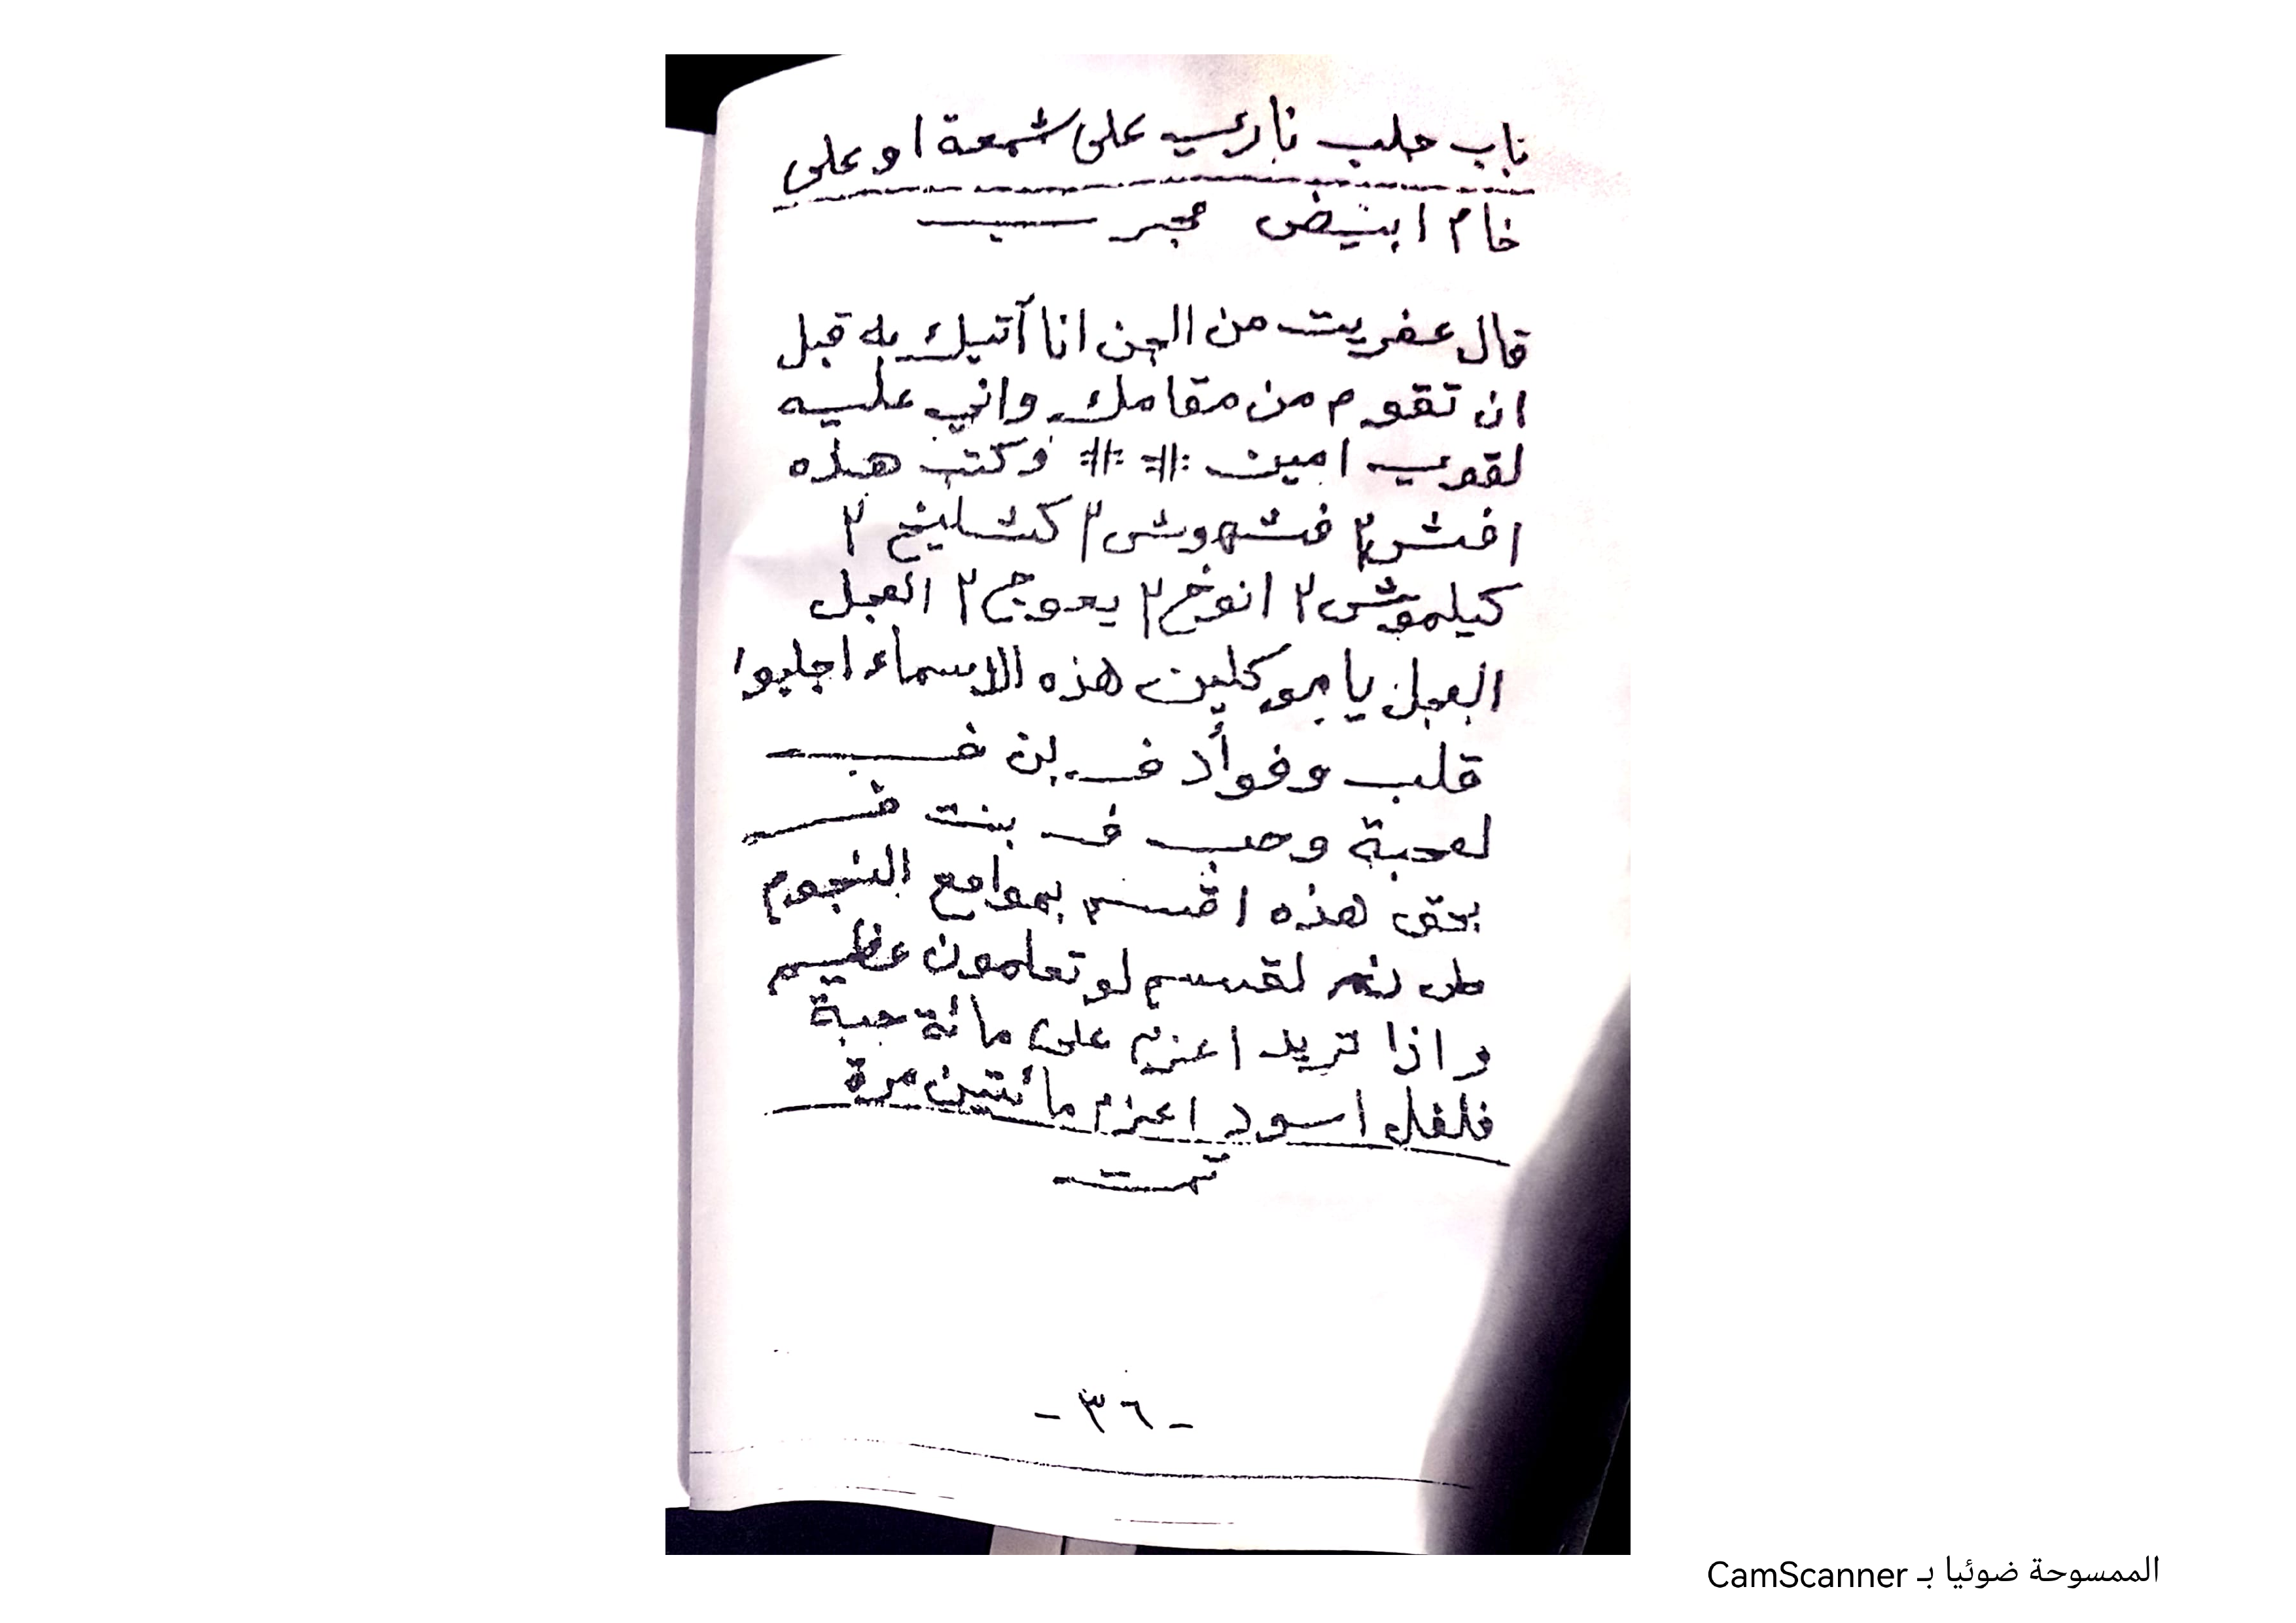 باب جلب ناري على شمعة او على
خام ابيض مجرب
قال عفريت من الجن انا آتيك به قبل
ان تقوم من مقامك واني عليه
لقوي امين # # وكتب هذه
افش٢ فشهوش٢ كشليخ ٢
كيلموش٢ انوخ٢ يعوج٢ العجل
العجل يا موكلين هذه الاسماء اجلبوا
قلب وفوأد ف بن ف
لمحبة وحب ف بنت ف
بحق هذه اقسم بمواقع النجوم
لقسم لو تعلمون عظيم
واذا تريد اعزم على مائة حبة
فلفل اسود اعزم مائتين مرة
تمت
- ٣٦ -
الممسوحة ضوئيا بـ CamScanner